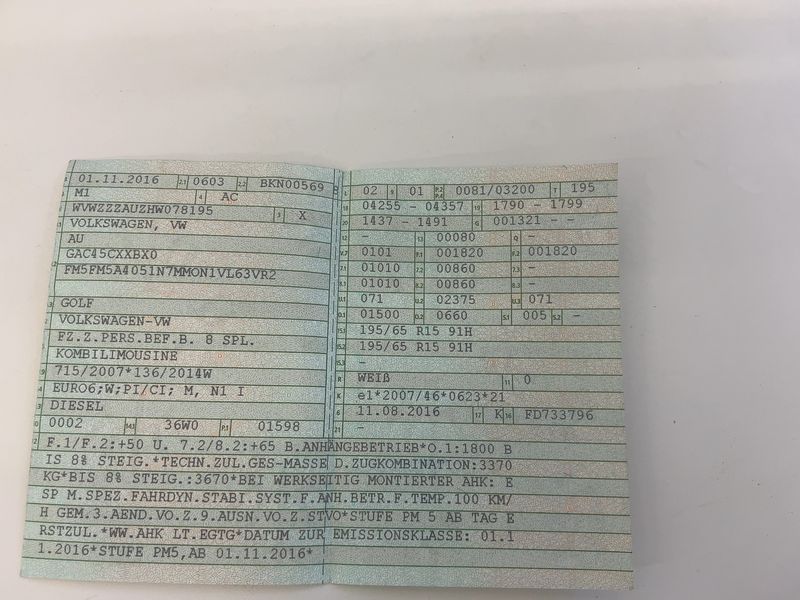 01.11.2016 2.1 0603 2.2 BKN00569
M1 4 AC
WVWZZZAUZHW078195 3 X
VOLKSWAGEN, VW
AU
GAC45CXXBX0
FM5FM5A4051N7MMON1VL63VR2
GOLF
VOLKSWAGEN-VW
FZ.Z.PERS.BEF.B. 8 SPL.
KOMBILIMOUSINE
715/2007*136/2014W
EURO6;W;PI/CI; M, N1 I
DIESEL
0002 14.1 36W0 P.1 01598
L 02 9 01 P.2 P.4 0081/03200 T 195
18 04255 - 04357 19 1790 - 1799
20 1437 - 1491 G 001321 - -
12 - 13 00080 Q -
V.7 0101 F.1 001820 F.2 001820
7.1 01010 7.2 00860 7.3 -
8.1 01010 8.2 00860 8.3 -
U.1 071 U.2 02375 U.3 071
O.1 01500 O.2 0660 S.1 005 S.2 -
15.1 195/65 R15 91H
15.2 195/65 R15 91H
15.3 -
R WEIß 11 0
K e1*2007/46*0623*21
6 11.08.2016 17 K 16 FD733796
21 -
F.1/F.2:+50 U. 7.2/8.2:+65 B.ANHÄNGEBETRIEB*O.1:1800 B
IS 8% STEIG.*TECHN.ZUL.GES-MASSE D.ZUGKOMBINATION:3370
KG*BIS 8% STEIG.:3670*BEI WERKSEITIG MONTIERTER AHK: E
SP M.SPEZ.FAHRDYN.STABI.SYST.F.ANH.BETR.F.TEMP.100 KM/
H GEM.3.AEND.VO.Z.9.AUSN.VO.Z.STVO*STUFE PM 5 AB TAG E
RSTZUL.*WW.AHK LT.EGTG*DATUM ZUR EMISSIONSKLASSE: 01.1
1.2016*STUFE PM5,AB 01.11.2016*